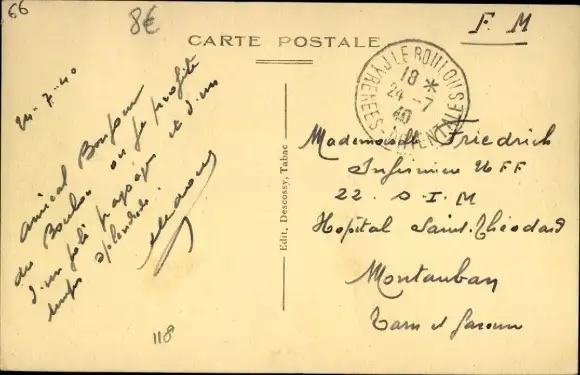 66
8€
F. M
CARTE POSTALE
LE BOULOU
18 *
24 - 7
40
PYRENEES-ORIENTALES
24-7-40
Amical Bonjour
du Boulou où je profite
d'un joli paysage et d'un
temps splendide.
118
Edit. Descossy, Tabac
Mademoiselle Friedrich
Infirmière UFF
22 - S - I - M
Hôpital Saint-Théodard
Montauban
Tarn et Garonne